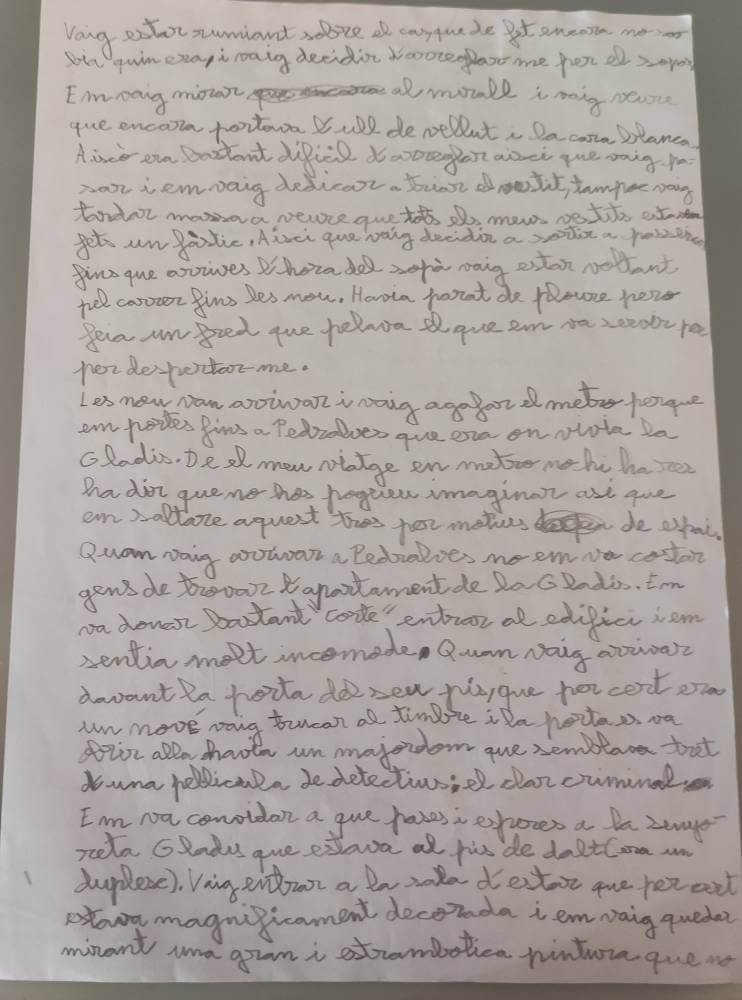 Vaig estar rumiant sobre el cas, que de fet encara no sa
bia quin era, i vaig decidir d'arreglarme per el sopar,
Em vaig mirar al mirall i vaig veure
que encara portava l'ull de vellut i la cara blanca.
Aiscò era bastant dificil d'arreglar aisci que vaig pa-
sar i em vaig dedicar a triar el vestit, tampoc vaig
tardar massa a veure que tots els meus vestits estaven
fets un fàstic. Aisci que vaig decidir a sortir a passejar
fins que arrives l'hora del sopà vaig estar voltant
pel carrer fins les nou. Havia parat de ploure pero
feia un fred que pelava el que em va servir per
per despertar-me.
Les nou van arrivar i vaig agafar el metro perque
em portes fins a Pedralves que era on vivia la
Gladis. De el meu viatge en metro no hi ha res
ha dir que no hos pogueu imaginar asi que
em saltare aquest tros per motius de espai.
Quan vaig arrivar a Pedralves no em va costar
gens de trovar l'apartament de la Gladis. Em
va donar bastant "corte" entrar al edifici i em
sentia molt incomode. Quan vaig arrivar
davant la porta del seu pis, que per cert era
un nové vaig trucar al timbre i la porta es va
obrir alla havia un majordom que semblava tret
d'una pellicula de detectius; el clar criminal
Em va convidar a que pases i esperes a la senyo-
reta Gladis que estava al pis de dalt (era un
duplesc). Vaig entrar a la sala d'estar que per cert
estava magnificament decorada i em vaig quedar
mirant una gran i estrambotica pintura que no